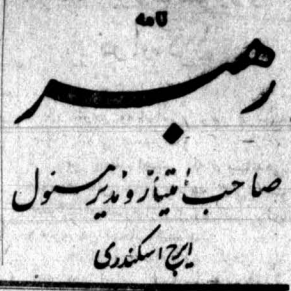 نامه
رهبر
صاحب امتیاز و مدیر مسئول
ایرج اسکندری